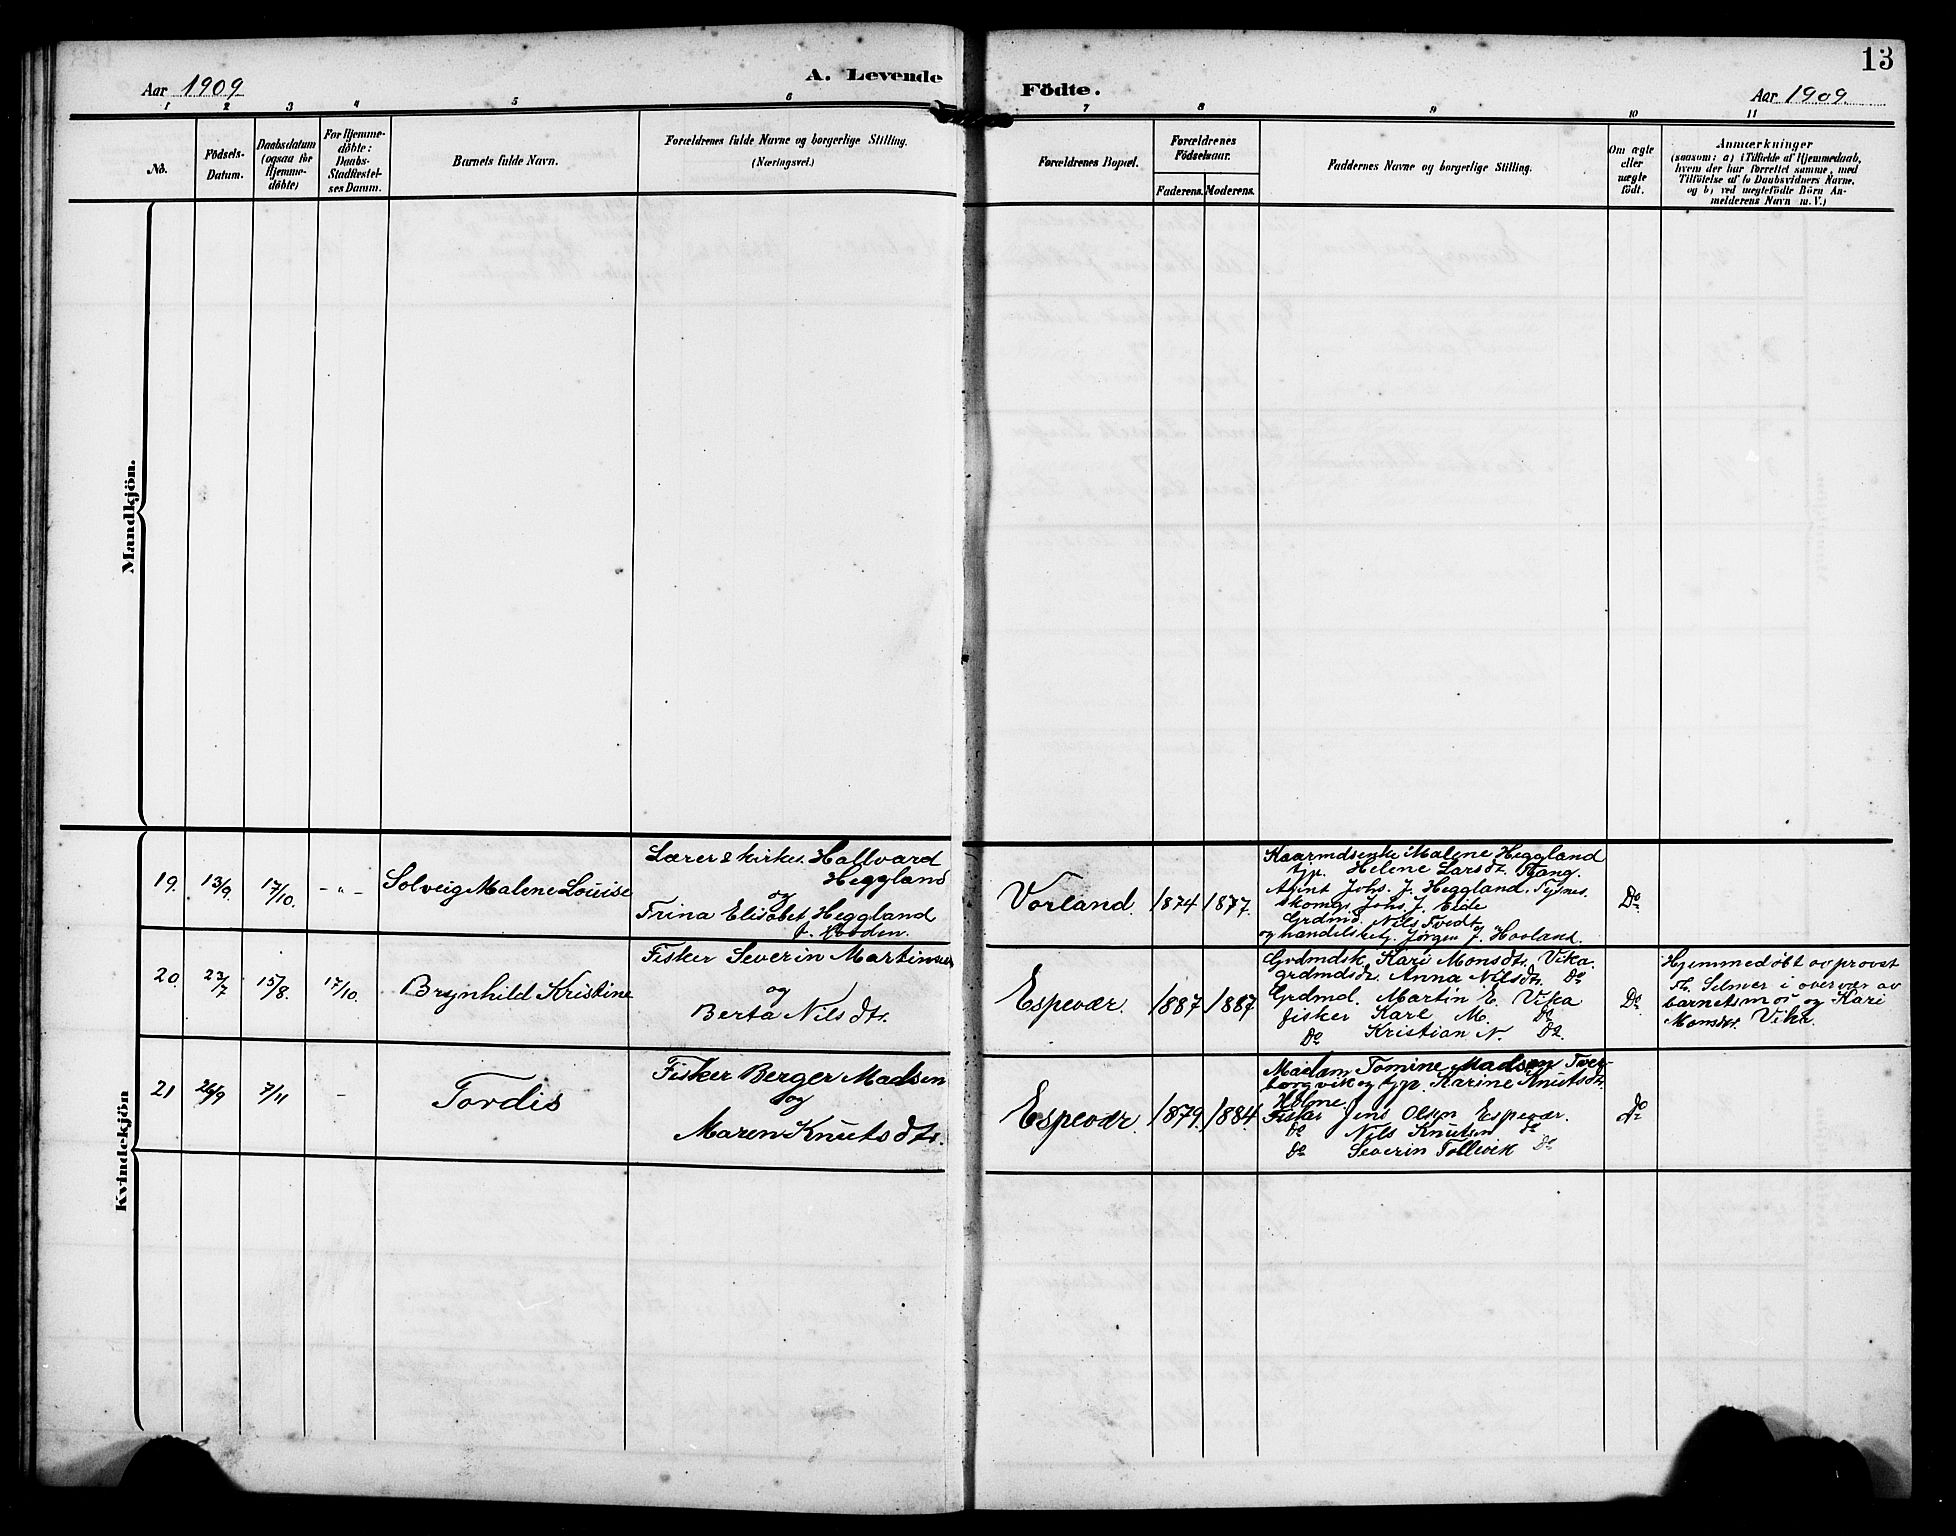 13
Aar 1909
A. Levende
Födte.
Aar 1909
1 2 3 4 5 6 7 8 9 10 11
No.
Födsels-
Datum.
Daabsdatum
(ogsaa for
Hjemme-
döbte)
For Hjemme-
döbte:
Daabs-
Stadfæstel-
ses Datum.
Barnets fulde Navn.
Forældrenes fulde Navne og borgerlige Stilling.
(Næringsvei.)
Forældrenes Bopæl.
Forældrenes
Födselsaar.
Faderens. Moderens.
Faddernes Navne og borgerlige Stilling.
Om ægte
eller
uægte
födt.
Anmærkninger
(saasom: a) i Tilfælde af Hjemmedaab,
hvem der har forrettet samme, med
Tilföielse af to Daabsvidners Navne,
og b) ved uægtefödte Börn An-
melderens Navn m. V.)
Mandkjön.
Kvindekjön
19. 13/9. 17/10. - " - Solveig Malene Louise
Lærer & kirkes. Hallvard
Heggland
og
Trina Elisabet Heggland
f.
Vorland. 1874 1877.
Kaarmdsenke Malene Heggland
tjp. Helene Larsdt. Vang.
Agent Johs. J. Heggland. Tysnes.
Skomg. Johs. J. Eide
Grdmd. Nils Tvedt
og handelsbetj. Jørgen J. Hovland.
Do
20. 23/7 15/8. 17/10. Brynhild Kristine
Fisker Severin Martinsen
og
Berta Nilsdtr.
Espevær. 1887 1887
Grdmdsk. Kari Monsdt. Vika.
grdmdsdt. Anna Nilsdt. Do
Grdmd. Martin E. Vika
fisker Karl M. Do
Do Kristian N. Do.
Do.
Hjemmedøbt av provst
Th. Selmer i overvær av
barnets mor og Kari
Monsdt. Vika.
21 26/9 7/11 - Tordis
Fisker Berger Madsen
og
Maren Knutsdtr.
Espevær. 1879. 1884.
Madam Tomine Madsen Tver-
borgvik og tjp. Karine Knutsdt.
Holme.
Fisker Jens Olsen Espevær.
Do Nils Knutsen Do
Do Severin Tollevik Do
Do